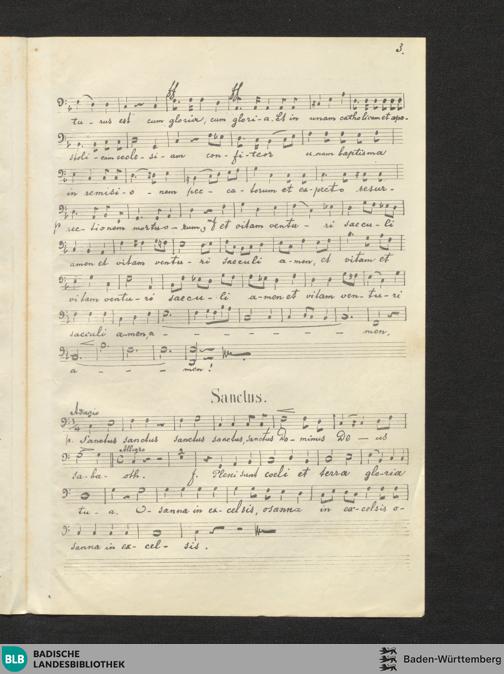 3.
tu - rus est cum gloria, cum glori - a. Et in unam catholicam et apo-
stoli - cam eccle - si - am con - fi - teor unum baptisma
in remisi - o - nem pec - ca - torum et ex - pecto resur-
rec - tionem mortuo - rum, et vitam ventu - ri saecu - li
amen et vitam ventu - ri saeculi a - men, et vitam et
vitam ventu - ri saecu - li a - men et vitam ven - tu - ri
saeculi amen, a - - - - - - men,
a - - - men!
Sanctus.
Adagio
p. Sanctus sanctus sanctus sanctus, sanctus Do - minus De - us
Allegro
sa - ba - oth. f. Pleni sunt coeli et terra gloria
tu - a. O - sanna in ex - celsis, osanna in ex - celsis o-
sanna in ex - cel - sis.
BLB BADISCHE
LANDESBIBLIOTHEK
Baden-Württemberg